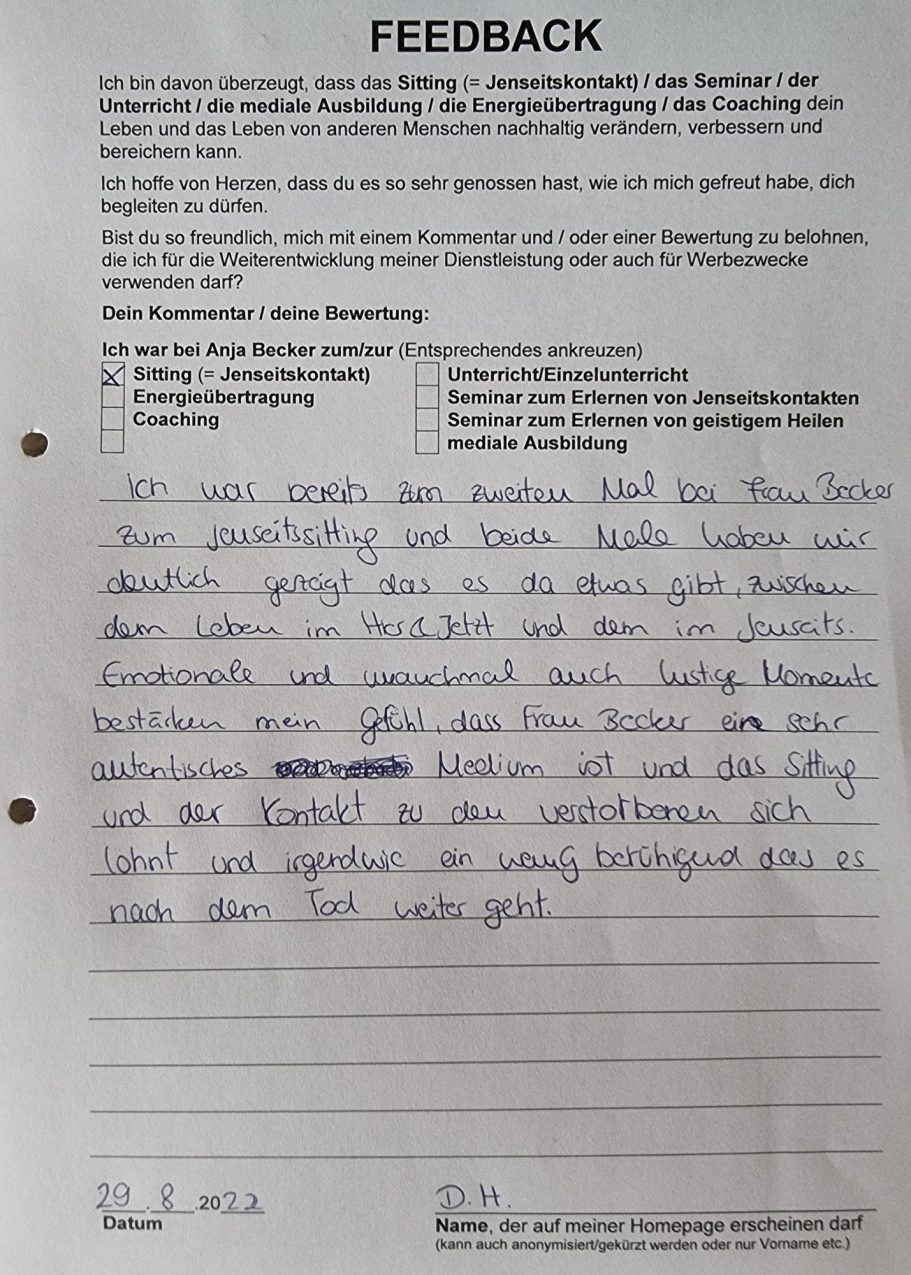 FEEDBACK
Ich bin davon überzeugt, dass das Sitting (= Jenseitskontakt) / das Seminar / der
Unterricht / die mediale Ausbildung / die Energieübertragung / das Coaching dein
Leben und das Leben von anderen Menschen nachhaltig verändern, verbessern und
bereichern kann.
Ich hoffe von Herzen, dass du es so sehr genossen hast, wie ich mich gefreut habe, dich
begleiten zu dürfen.
Bist du so freundlich, mich mit einem Kommentar und / oder einer Bewertung zu belohnen,
die ich für die Weiterentwicklung meiner Dienstleistung oder auch für Werbezwecke
verwenden darf?
Dein Kommentar / deine Bewertung:
Ich war bei Anja Becker zum/zur (Entsprechendes ankreuzen)
Sitting (= Jenseitskontakt) Unterricht/Einzelunterricht
Energieübertragung Seminar zum Erlernen von Jenseitskontakten
Coaching Seminar zum Erlernen von geistigem Heilen
mediale Ausbildung
Ich war bereits zum zweiten Mal bei Frau Becker
zum Jenseitssitting und beide Male haben mir
deutlich gezeigt das es da etwas gibt, zwischen
dem Leben im Hier & Jetzt und dem im Jenseits.
Emotionale und manchmal auch lustige Momente
bestärken mein Gefühl, dass Frau Becker ein sehr
autentisches Medium ist und das Sitting
und der Kontakt zu den verstorbenen sich
lohnt und irgendwie ein wenig beruhigend das es
nach dem Tod weiter geht.
29.8.2022 D.H.
Datum Name, der auf meiner Homepage erscheinen darf
(kann auch anonymisiert/gekürzt werden oder nur Vorname etc.)